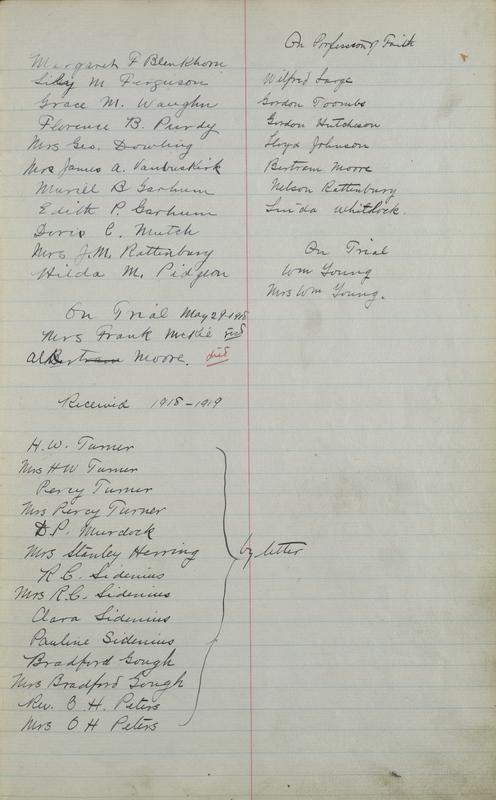 Margaret F Blenkhorn
Lily M Ferguson
Grace M. Waughn
Florence B. Purdy
Mrs Geo. Dowling
Mrs James A. Vanbuskirk
Muriel B Garhum
Edith P. Garhum
Doris C. Mutch
Mrs J.M. Rattenbury
Hilda M. Pidgeon
On Trial May 29-1918
Mrs Frank McKie
Al Bertram Moore. died
Received 1918-1919
H.W. Turner
Mrs HW Turner
Percy Turner
Mrs Percy Turner
D.P. Murdock
Mrs Stanley Herring
R.C. Sidenius
Mrs R.C. Sidenius
Clara Sidenius
Pauline Sidenius
Bradford Gough
Mrs Bradford Gough
Rev. O. H. Peters
Mrs O H Peters
by letter
On Profession of Faith
Wilfred Large
Gordon Toombs
Gordon Hutcheson
Lloyd Johnson
Bertram Moore
Nelson Rattenbury
Linda Whitlock.
On Trial
Wm Young
Mrs Wm Young.